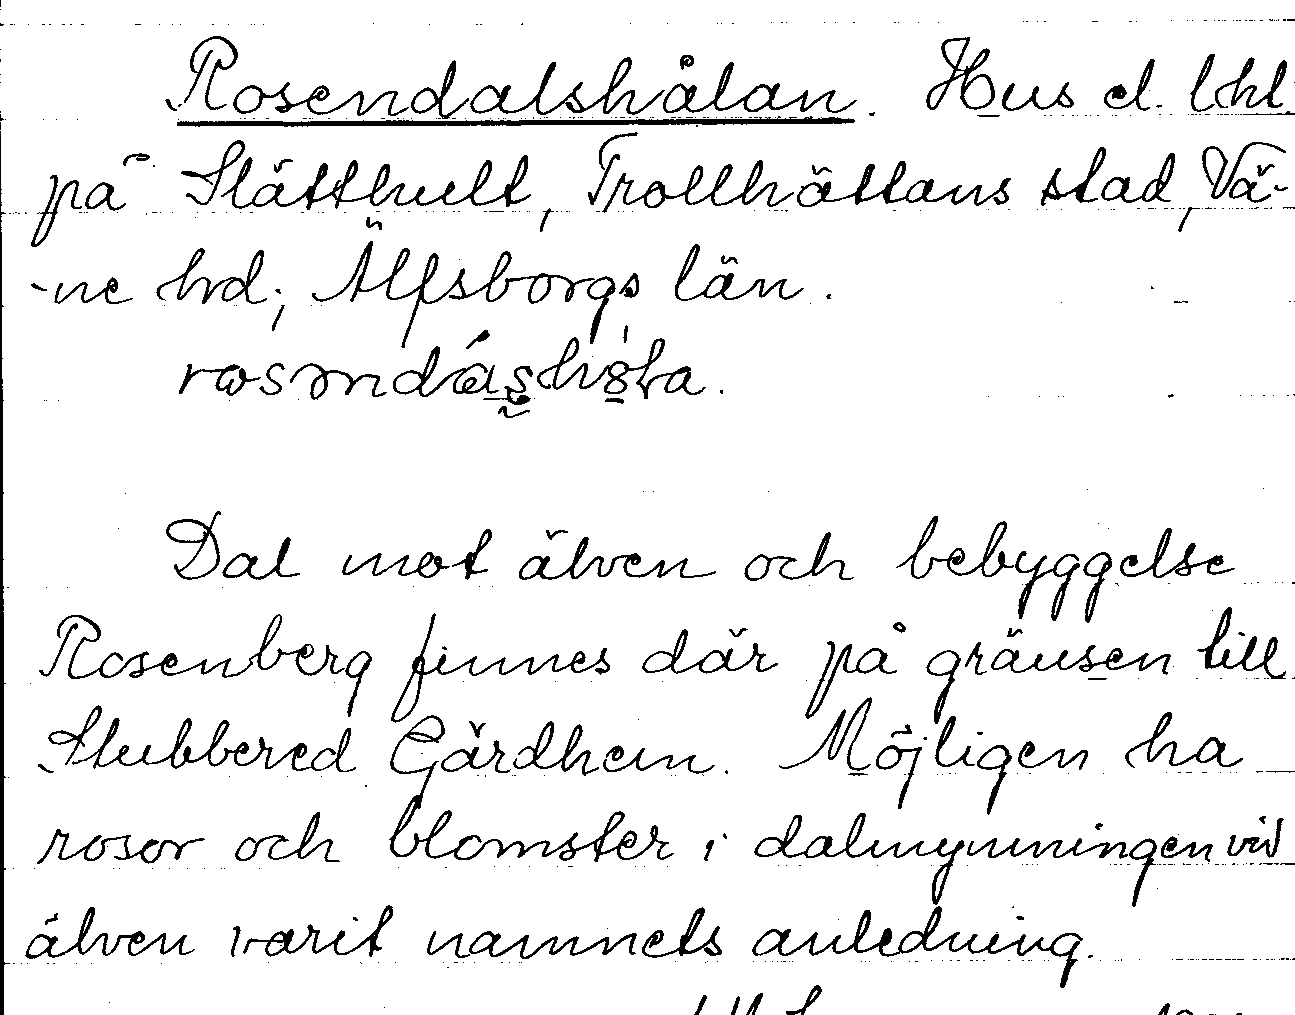 Rosendalshålan. Hus el. lhl.
på Slätthult, Trollhättans stad, Vä-
-ne hd; Älfsborgs län.
Dal mot älven och bebyggelse
Rosenberg finnes där på gränsen till
Stubbered Gärdhem. Möjligen ha
rosor och blomster i dalmynningen vid
älven varit namnets anledning.